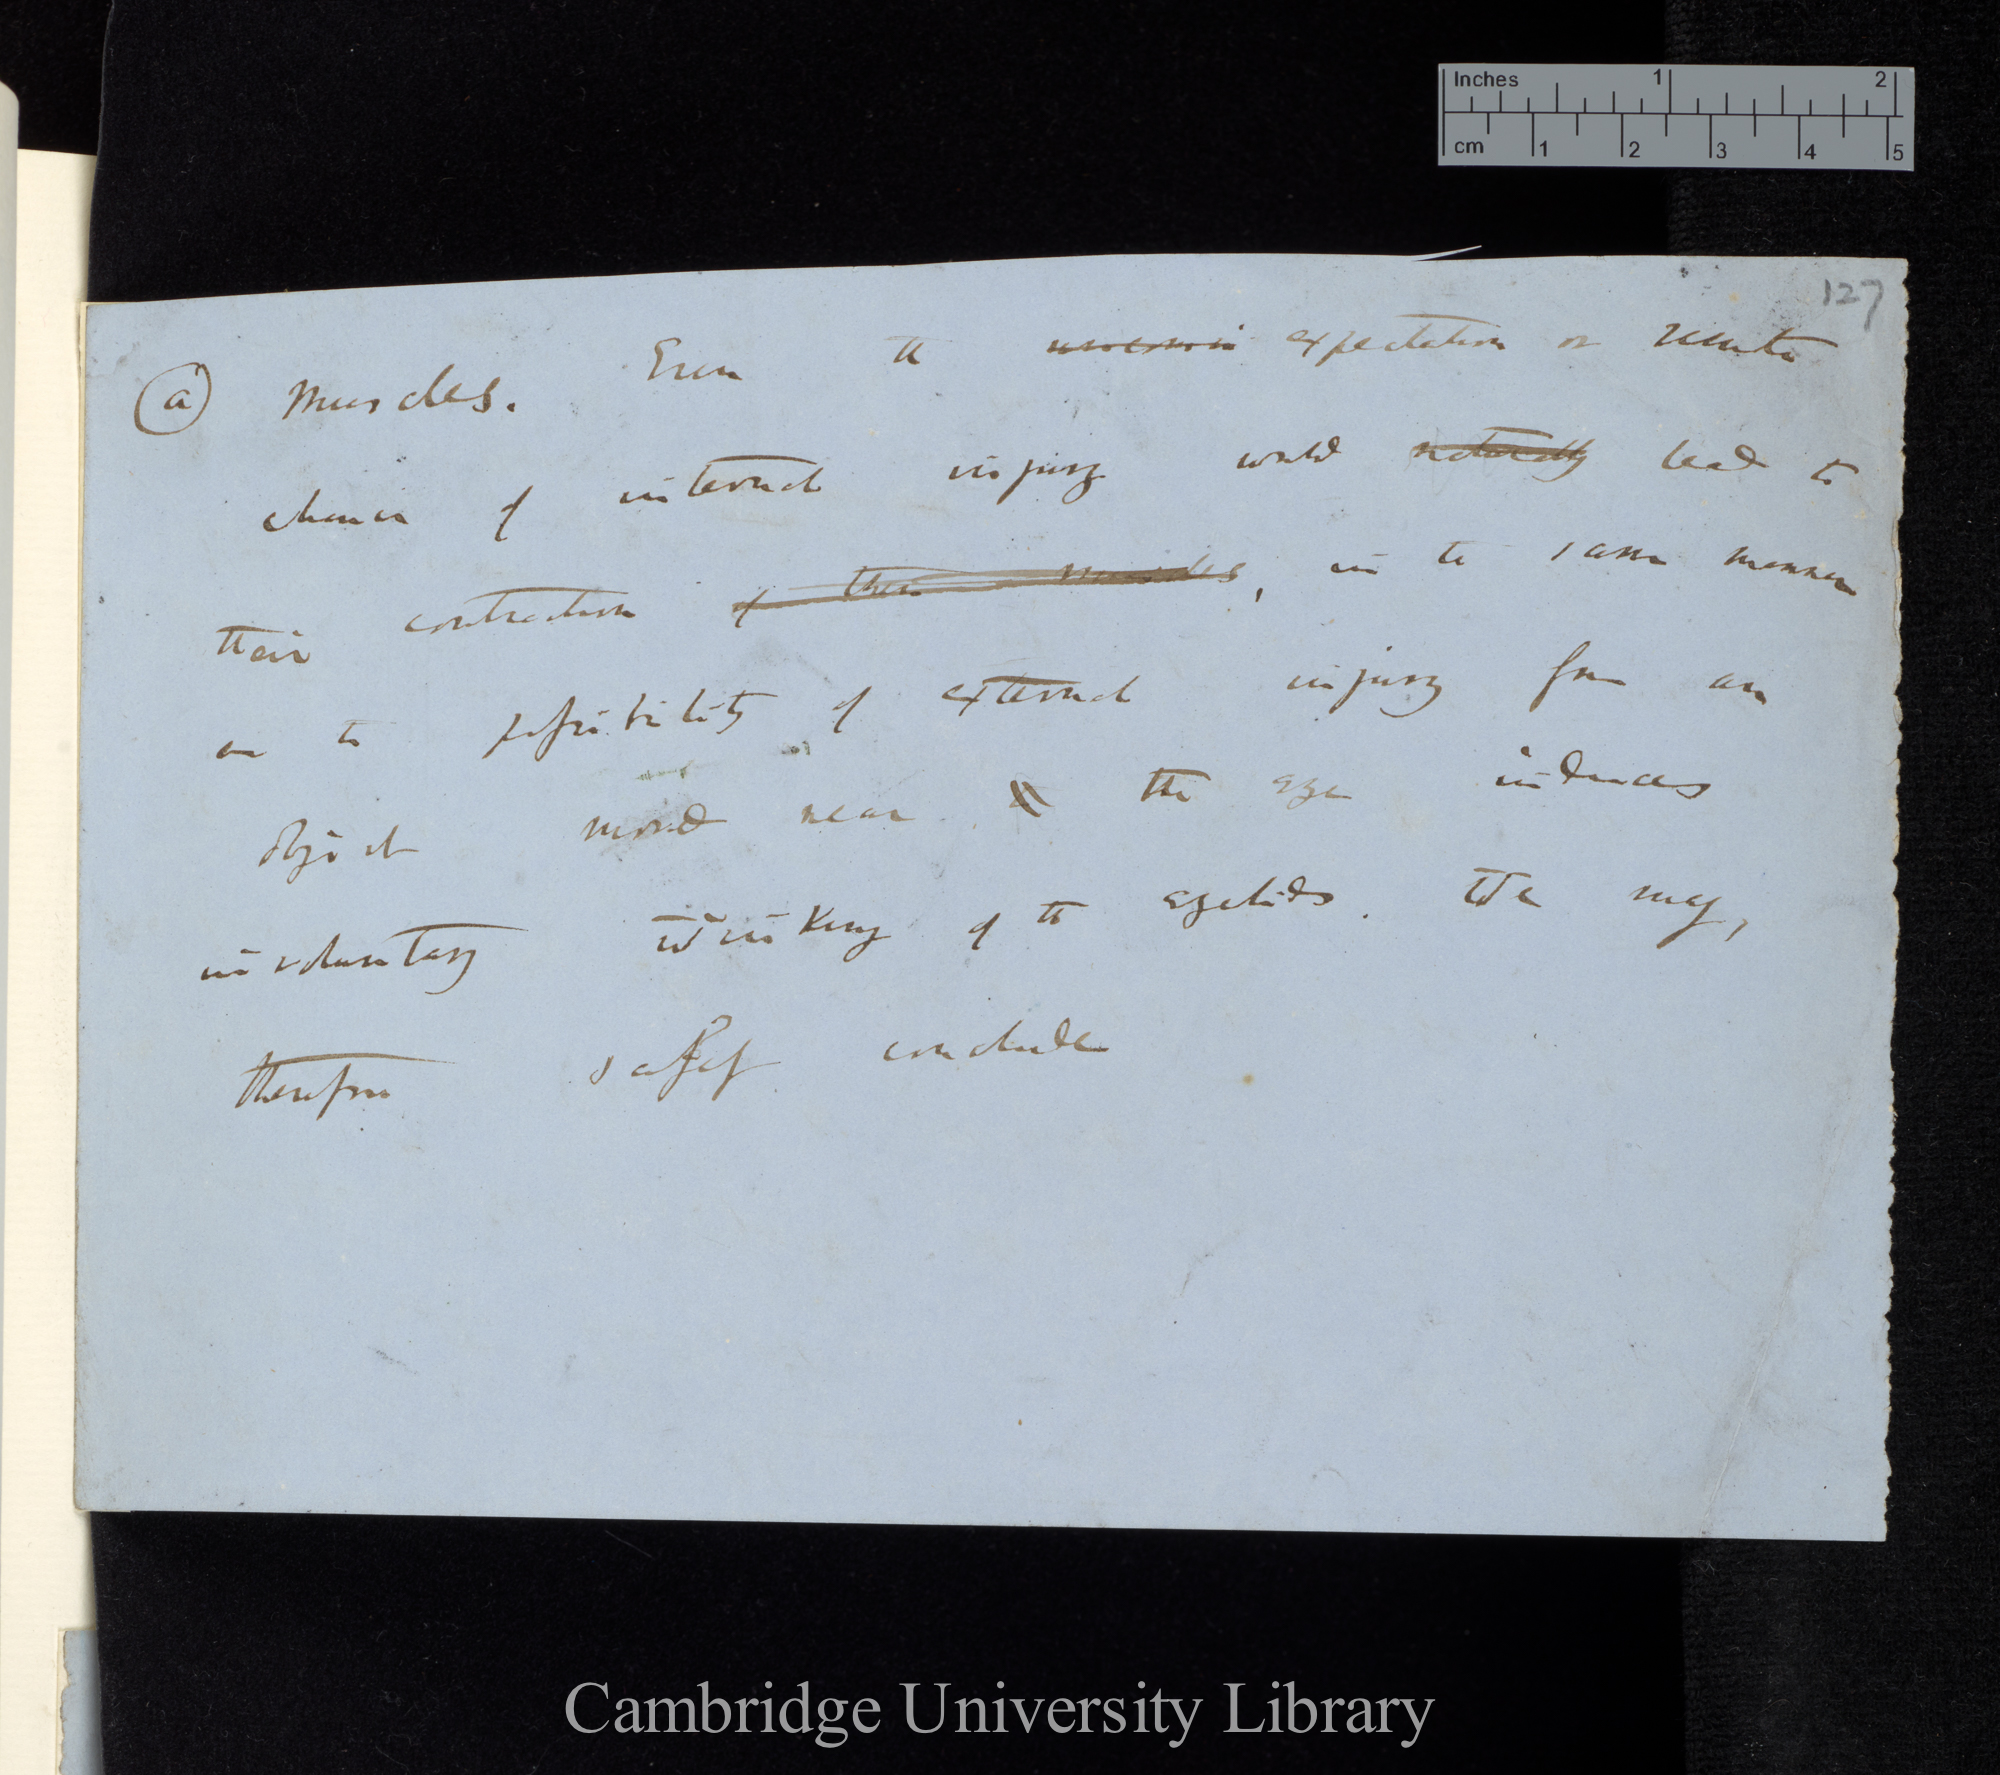 Inches 1 2
cm 1 2 3 4 5
127
(a) muscles. Even the expectation or remote
chance of internal injury would naturally lead to
their contraction of these muscles, in the same manner
as the possibility of external injury from an
object moved near the eye induces
involuntary winking of the eyelids. We may,
therefore safely conclude
Cambridge University Library